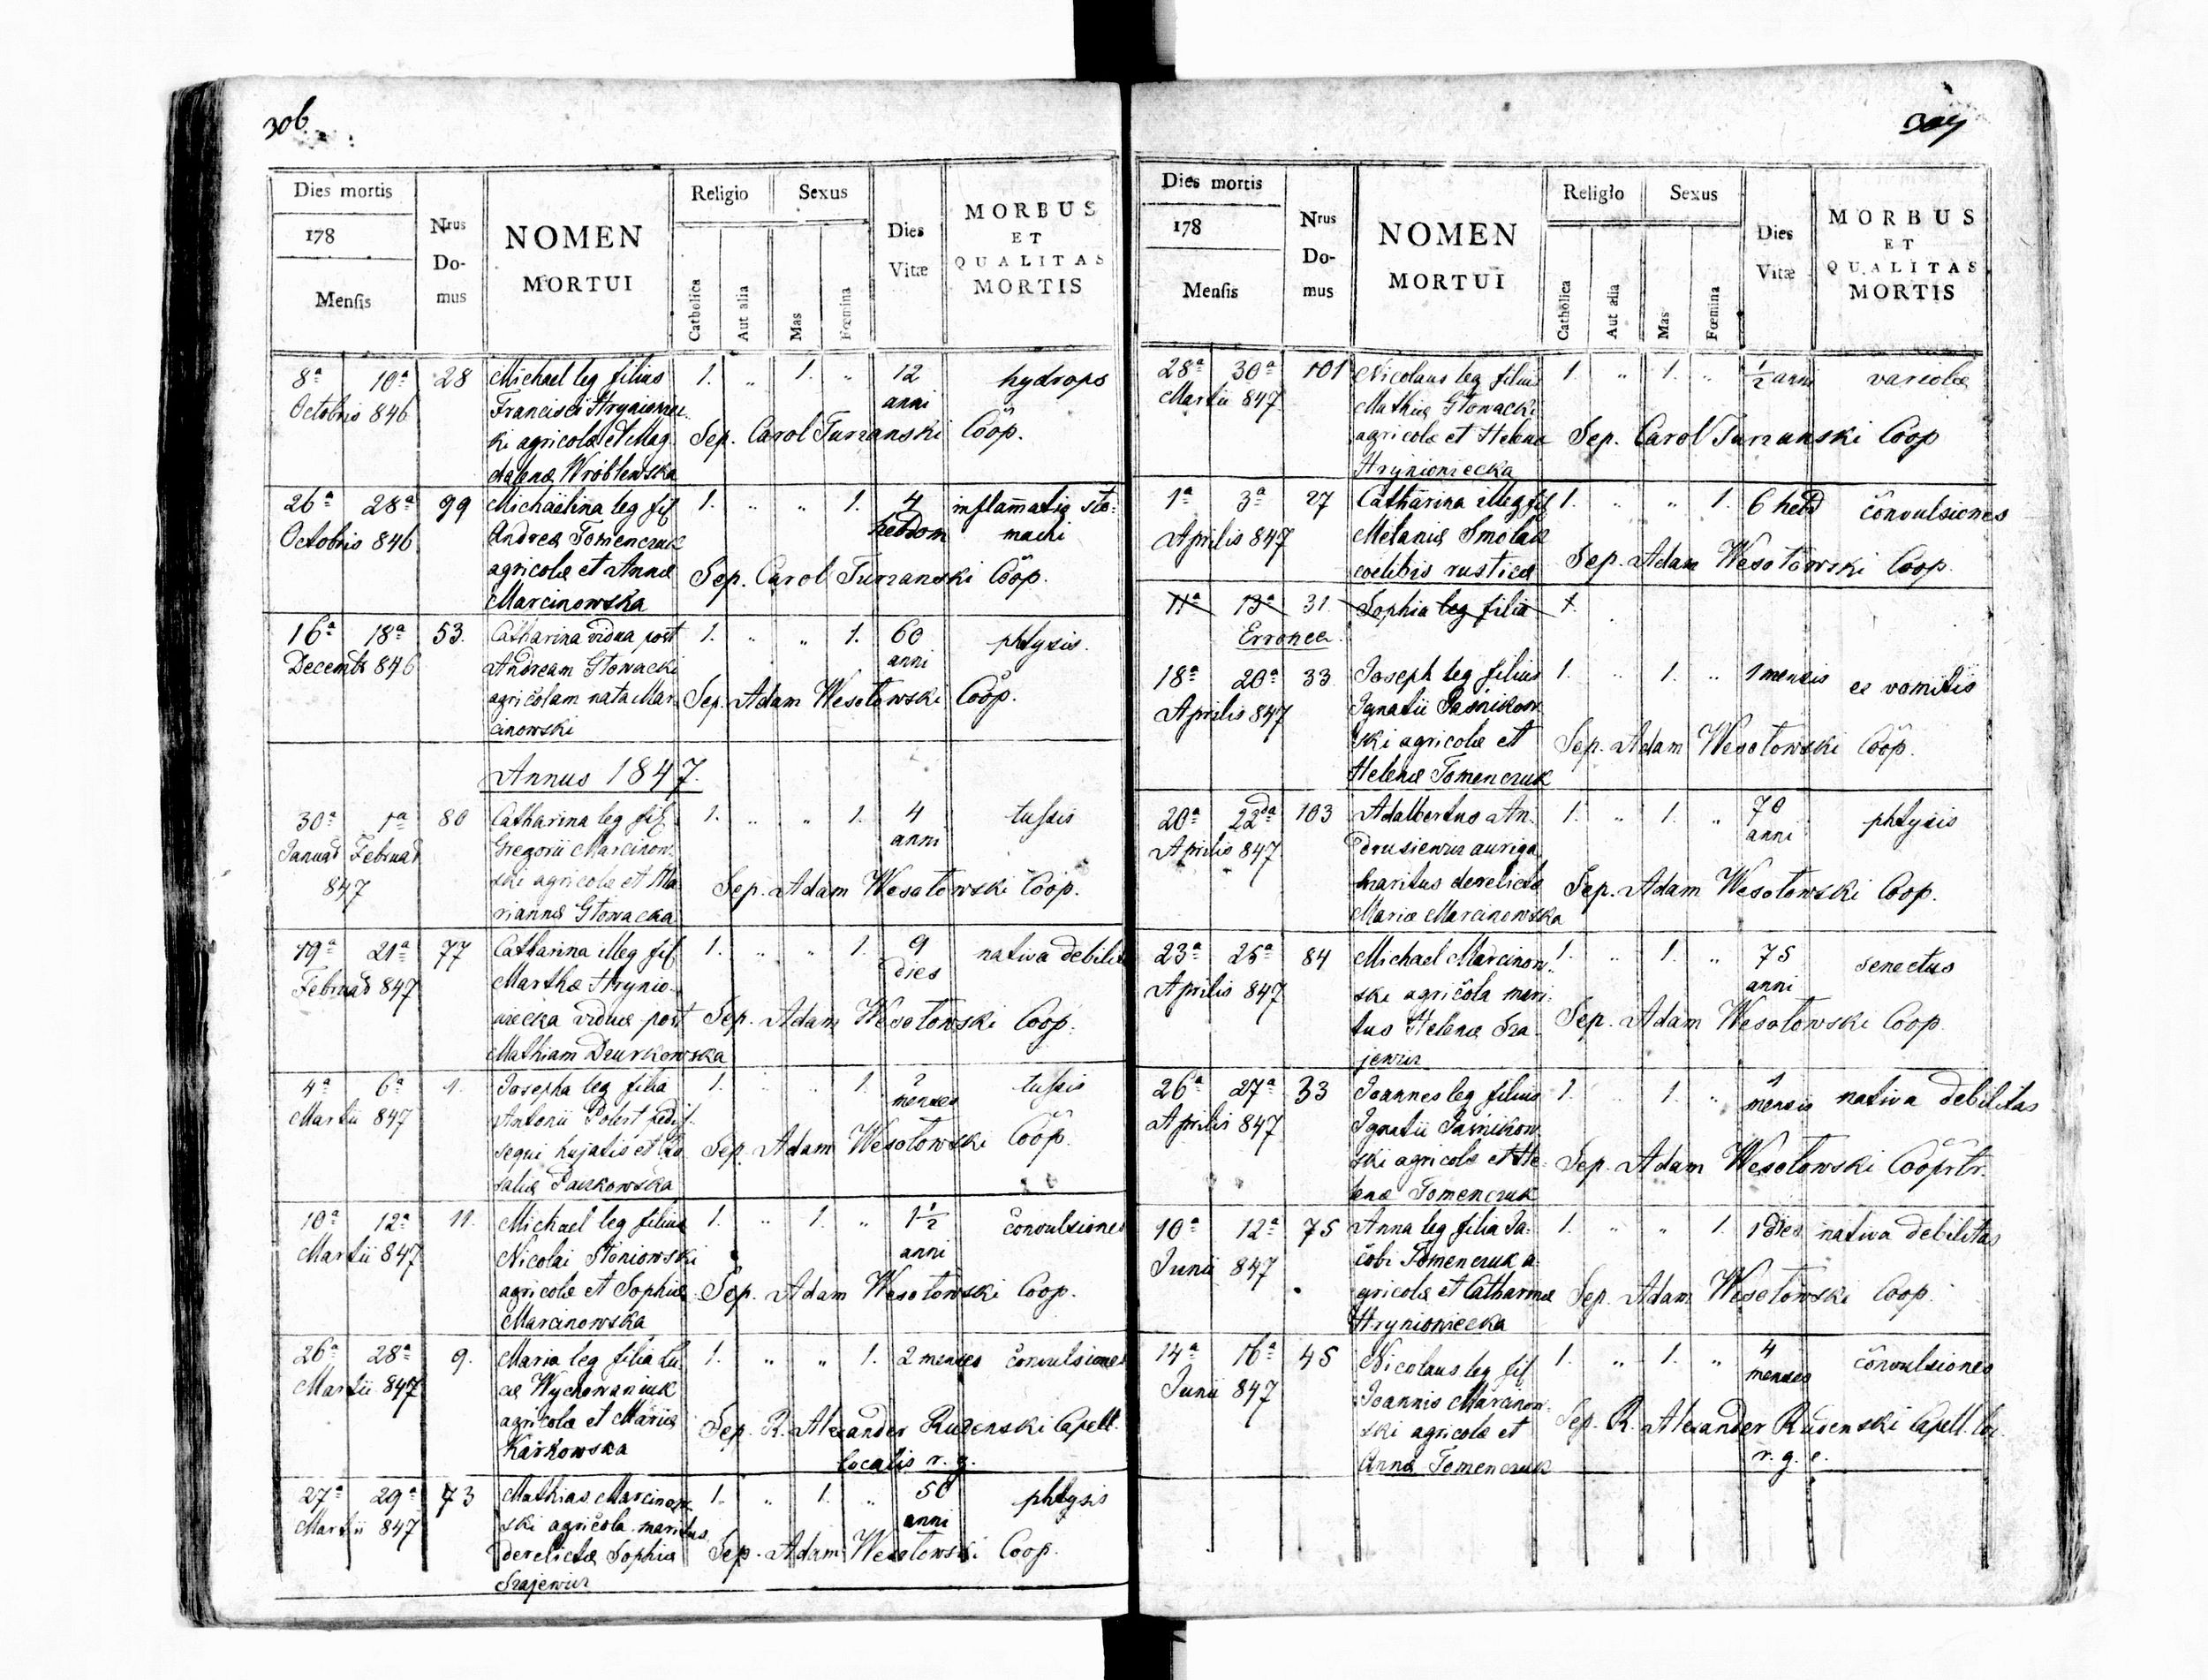 306.
Dies mortis
178
Mensis
Nrus
Do-
mus
NOMEN
MORTUI
Religio
Catholica
Aut alia
Sexus
Mas
Fœmina
Dies
Vitæ
MORBUS
ET
QUALITAS
MORTIS
8ª 10ª 28 Michael leg filius 1. „ 1. „ 12 hydrops
Octobris 846 Francisci Hryniowiec- anni
ki agricolæ et Mag- Sep. Carol Turzanski Coop.
dalenæ Wróblewska
26ª 28ª 99 Michaëlina leg fil 1. „ „ 1. 4 inflam̄atio sto-
Octobris 846 Andreæ Tomenczuk hebdom machi
agricolæ et Annæ Sep. Carol Turzanski Coop.
Marcinowska
16ª 18ª 53. Catharina vidua post 1. „ „ 1. 60 phtysis.
Decemb 846 Andream Głowacki anni
agricolam nata Mar- Sep. Adam Wesołowski Coop.
cinowski
Annus 1847.
30ª 1ª 80 Catharina leg fil 1. „ „ 1. 4 tussis
Januar Februar Gregorii Marcinow- anni
847 ski agricolæ et Ma- Sep. Adam Wesołowski Coop.
riannæ Głowacka
19ª 21ª 77 Catharina illeg fil 1. „ „ 1. 9 nativa debilita
Februar 847 Marthæ Hrynio- dies
wiecka viduæ post Sep. Adam Wesołowski Coop.
Mathiam Dzurkowska
4ª 6ª 1. Josepha leg filia 1. „ „ 1. 2 tussis
Martii 847 Antonii menses
sequi hujatis et Ro- Sep. Adam Wesołowski Coop.
saliæ
10ª 12ª 11. Michael leg filius 1. „ 1. „ 1½ convulsiones
Martii 847 Nicolai Steniowski anni
agricolæ et Sophiæ Sep. Adam Wesołowski Coop.
Marcinowska
26ª 28ª 9. Maria leg filia Lu- 1. „ „ 1. 2 menses convulsiones
Martii 847 cæ Wychowaniuk
agricolæ et Mariæ Sep. R. Alexander Ruzenski Capell.
Karkowska localis r. g.
27ª 29ª 73 Mathias Marcinow- 1. „ 1. „ 50 phtysis
Martii 847 ski agricola maritus anni
derelictæ Sophiæ Sep. Adam Wesołowski Coop.
Szajewicz
307
Dies mortis
178
Mensis
Nrus
Do-
mus
NOMEN
MORTUI
Religio
Catholica
Aut alia
Sexus
Mas
Fœmina
Dies
Vitæ
MORBUS
ET
QUALITAS
MORTIS
28ª 30ª 101 Nicolaus leg filius 1. „ 1. „ ½ anni variolæ
Martii 847 Mathiæ Głowacki
agricolæ et Helenæ Sep. Carol Turzanski Coop
Hryniowiecka
1ª 3ª 27 Catharina illeg fil 1. „ „ 1. 6 hebd convulsiones
Aprilis 847 Melaniæ Smolak
coelibis rusticæ Sep. Adam Wesołowski Coop.
11ª 13ª 31. Sophia leg filia 1.
Erronee.
18ª 20ª 33 Joseph leg filius 1. „ 1. „ 1 mensis ex vomitis
Aprilis 847 Ignatii Jaśnikow-
ski agricolæ et Sep. Adam Wesołowski Coop.
Helenæ Tomenczuk
20ª 22da 103 Adalbertus An- 1. „ 1. „ 70 phtysis
Aprilis 847 drusiewicz auriga anni
maritus derelictæ Sep. Adam Wesołowski Coop.
Mariæ Marcinowska
23ª 25ª 84 Michael Marcinow- 1. „ 1. „ 75 senectus
Aprilis 847 ski agricola mari- anni
tus Helenæ Sza- Sep. Adam Wesołowski Coop.
jewicz
26ª 27ª 33 Joannes leg filius 1. „ 1. „ 1 nativa debilitas
Aprilis 847 Ignatii Jaśnikow- mensis
ski agricolæ et He- Sep. Adam Wesołowski Cooprtr.
lenæ Tomenczuk
10ª 12ª 75 Anna leg filia Ja- 1. „ „ 1. 1 dies nativa debilitas
Junii 847 cobi Tomenczuk a-
gricolæ et Catharinæ Sep. Adam Wesołowski Coop.
Hryniowiecka
14ª 16ª 45 Nicolaus leg fil 1. „ 1. „ 4 convulsiones
Junii 847 Joannis Marcinow- menses
ski agricolæ et Sep. R. Alexander Ruzenski Capell. loc.
Annæ Tomenczuk r. g. c.